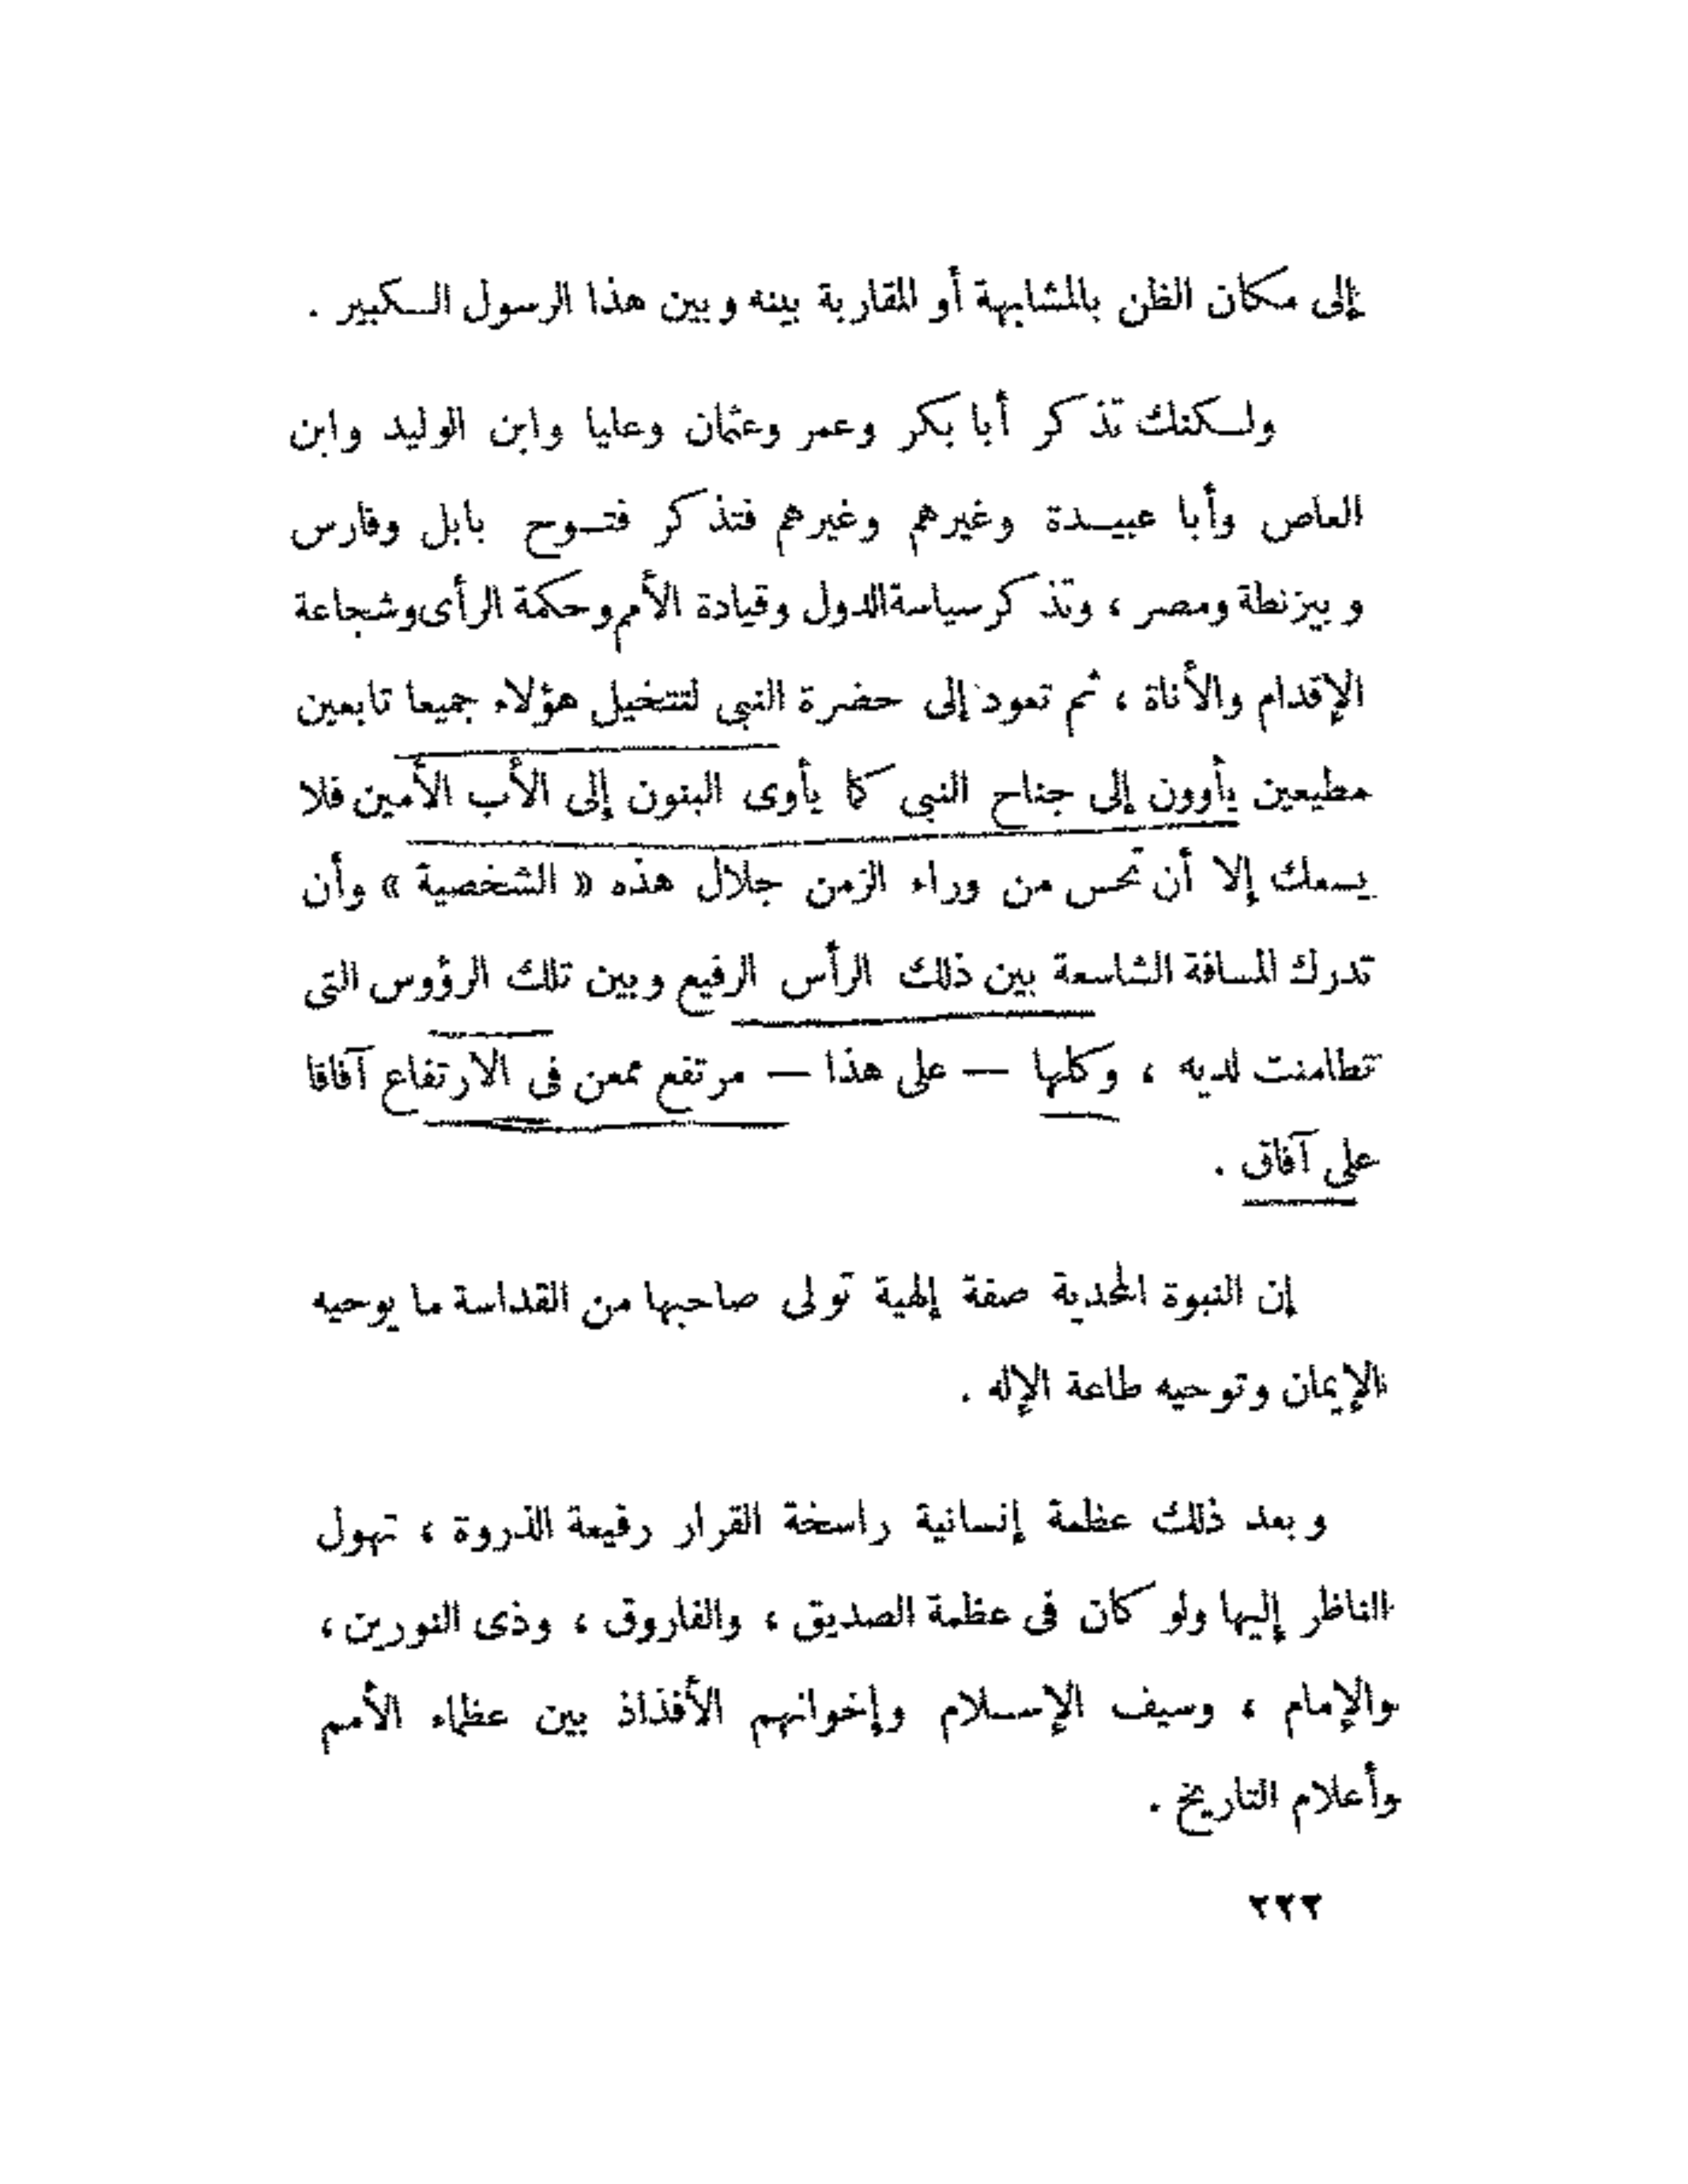 إلى مكان الظن بالمشابهة أو المقاربة بينه وبين هذا الرسول الكبير .
ولكنك تذكر أبا بكر وعمر وعثمان وعليا وابن الوليد وابن
العاص وأبا عبيدة وغيرهم وغيرهم فتذكر فتوح بابل وفارس
وبيزنطة ومصر ، وتذكر سياسة الدول وقيادة الأمم وحكمة الرأى وشجاعة
الإقدام والأناة ، ثم تعود إلى حضرة النبى لتتخيل هؤلاء جميعا تابعين
مطيعين يأوون إلى جناح النبى كما يأوى البنون إلى الأب الأمين فلا
يسعك إلا أن تحس من وراء الزمن جلال هذه « الشخصية » وأن
تدرك المسافة الشاسعة بين ذلك الرأس الرفيع وبين تلك الرؤوس التى
تطامنت لديه ، وكلها — على هذا — مرتفع ممعن فى الارتفاع آفاقا
على آفاق .
إن النبوة المحمدية صفة إلهية تولى صاحبها من القداسة ما يوحيه
الإيمان وتوحيه طاعة الإله .
وبعد ذلك عظمة إنسانية راسخة القرار رفيعة الذروة ، تهول
الناظر إليها ولو كان فى عظمة الصديق ، والفاروق ، وذى النورين ،
والإمام ، وسيف الإسلام وإخوانهم الأفذاذ بين عظماء الأمم
وأعلام التاريخ .
٢٢٢